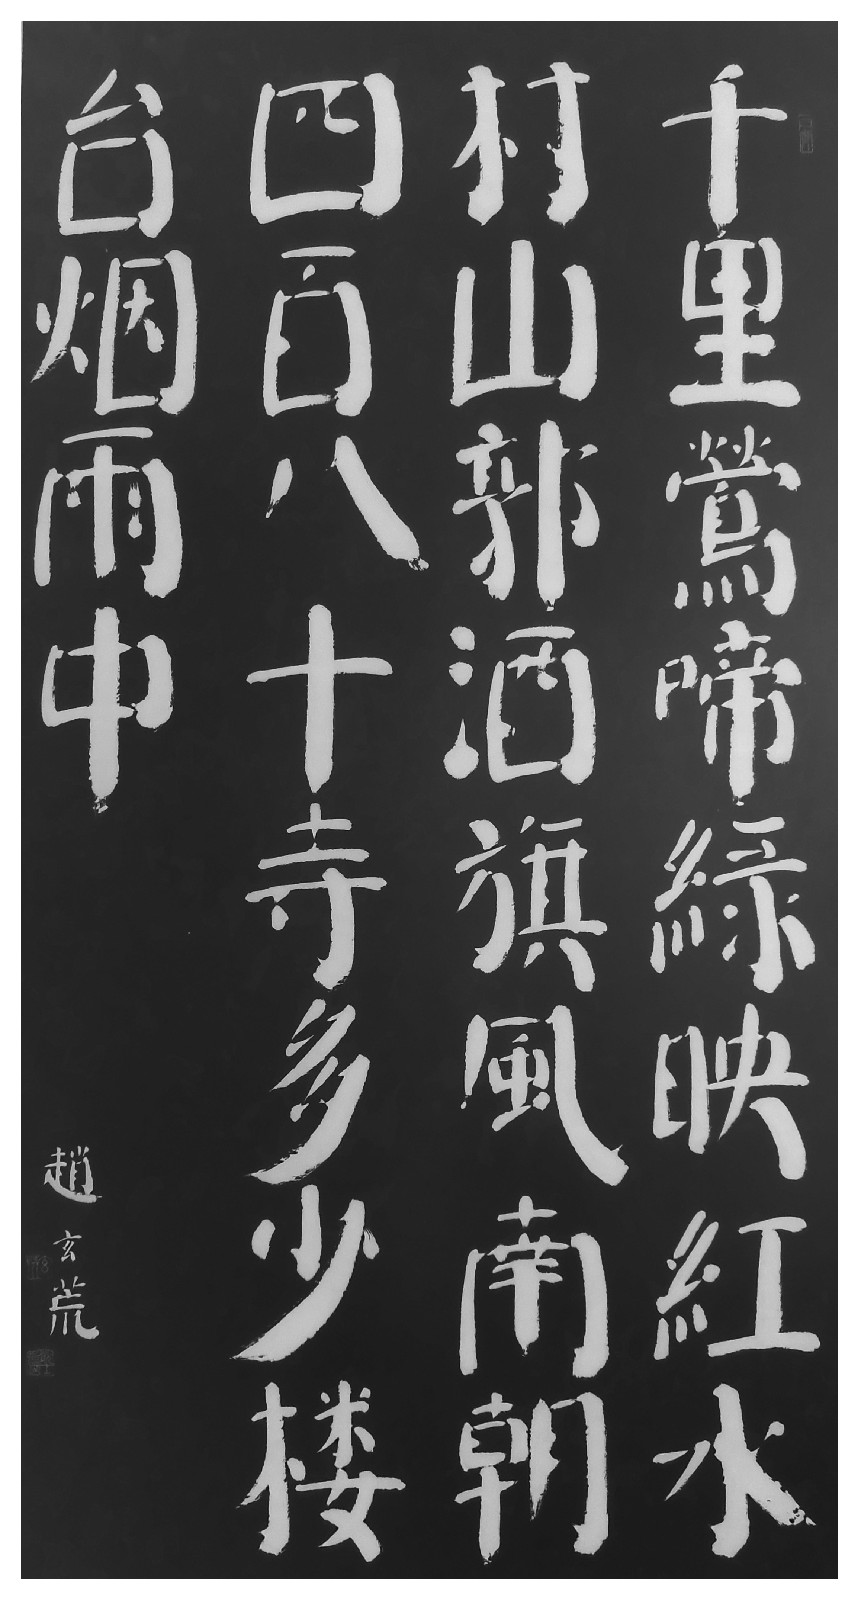 千里鶯啼緑映紅水
村山郭酒旗風南朝
四百八十寺多少楼
台烟雨中
趙玄荒